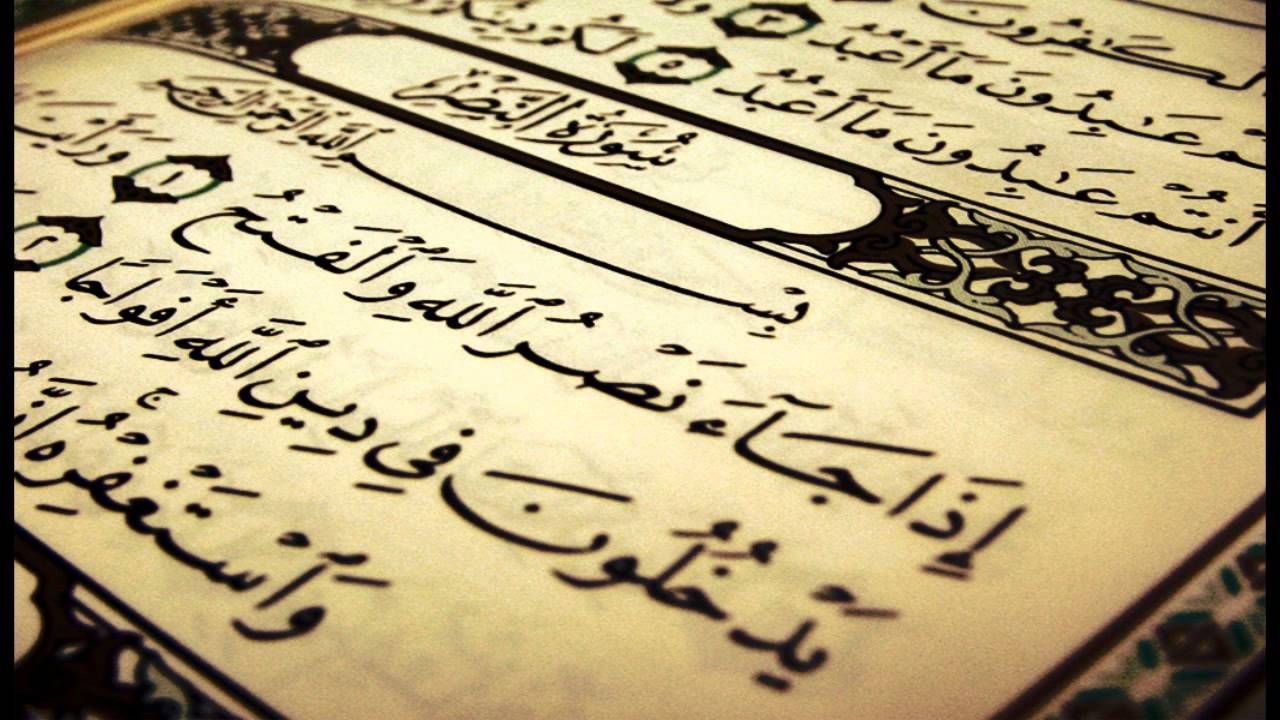 ٱلۡكَٰفِرُونَ
عَٰبِدُونَ مَآ أَعۡبُدُ ٣ وَ
أَنتُمۡ عَٰبِدُونَ مَآ أَعۡبُدُ ٥ لَكُمۡ دِينُكُمۡ
سُورَةُ النَّصۡرِ
بِسۡمِ ٱللَّهِ ٱلرَّحۡمَٰنِ ٱلرَّحِيمِ
إِذَا جَآءَ نَصۡرُ ٱللَّهِ وَٱلۡفَتۡحُ ١ وَرَأَيۡتَ
يَدۡخُلُونَ فِي دِينِ ٱللَّهِ أَفۡوَاجٗا ٢
وَٱسۡتَغۡفِرۡهُۚ